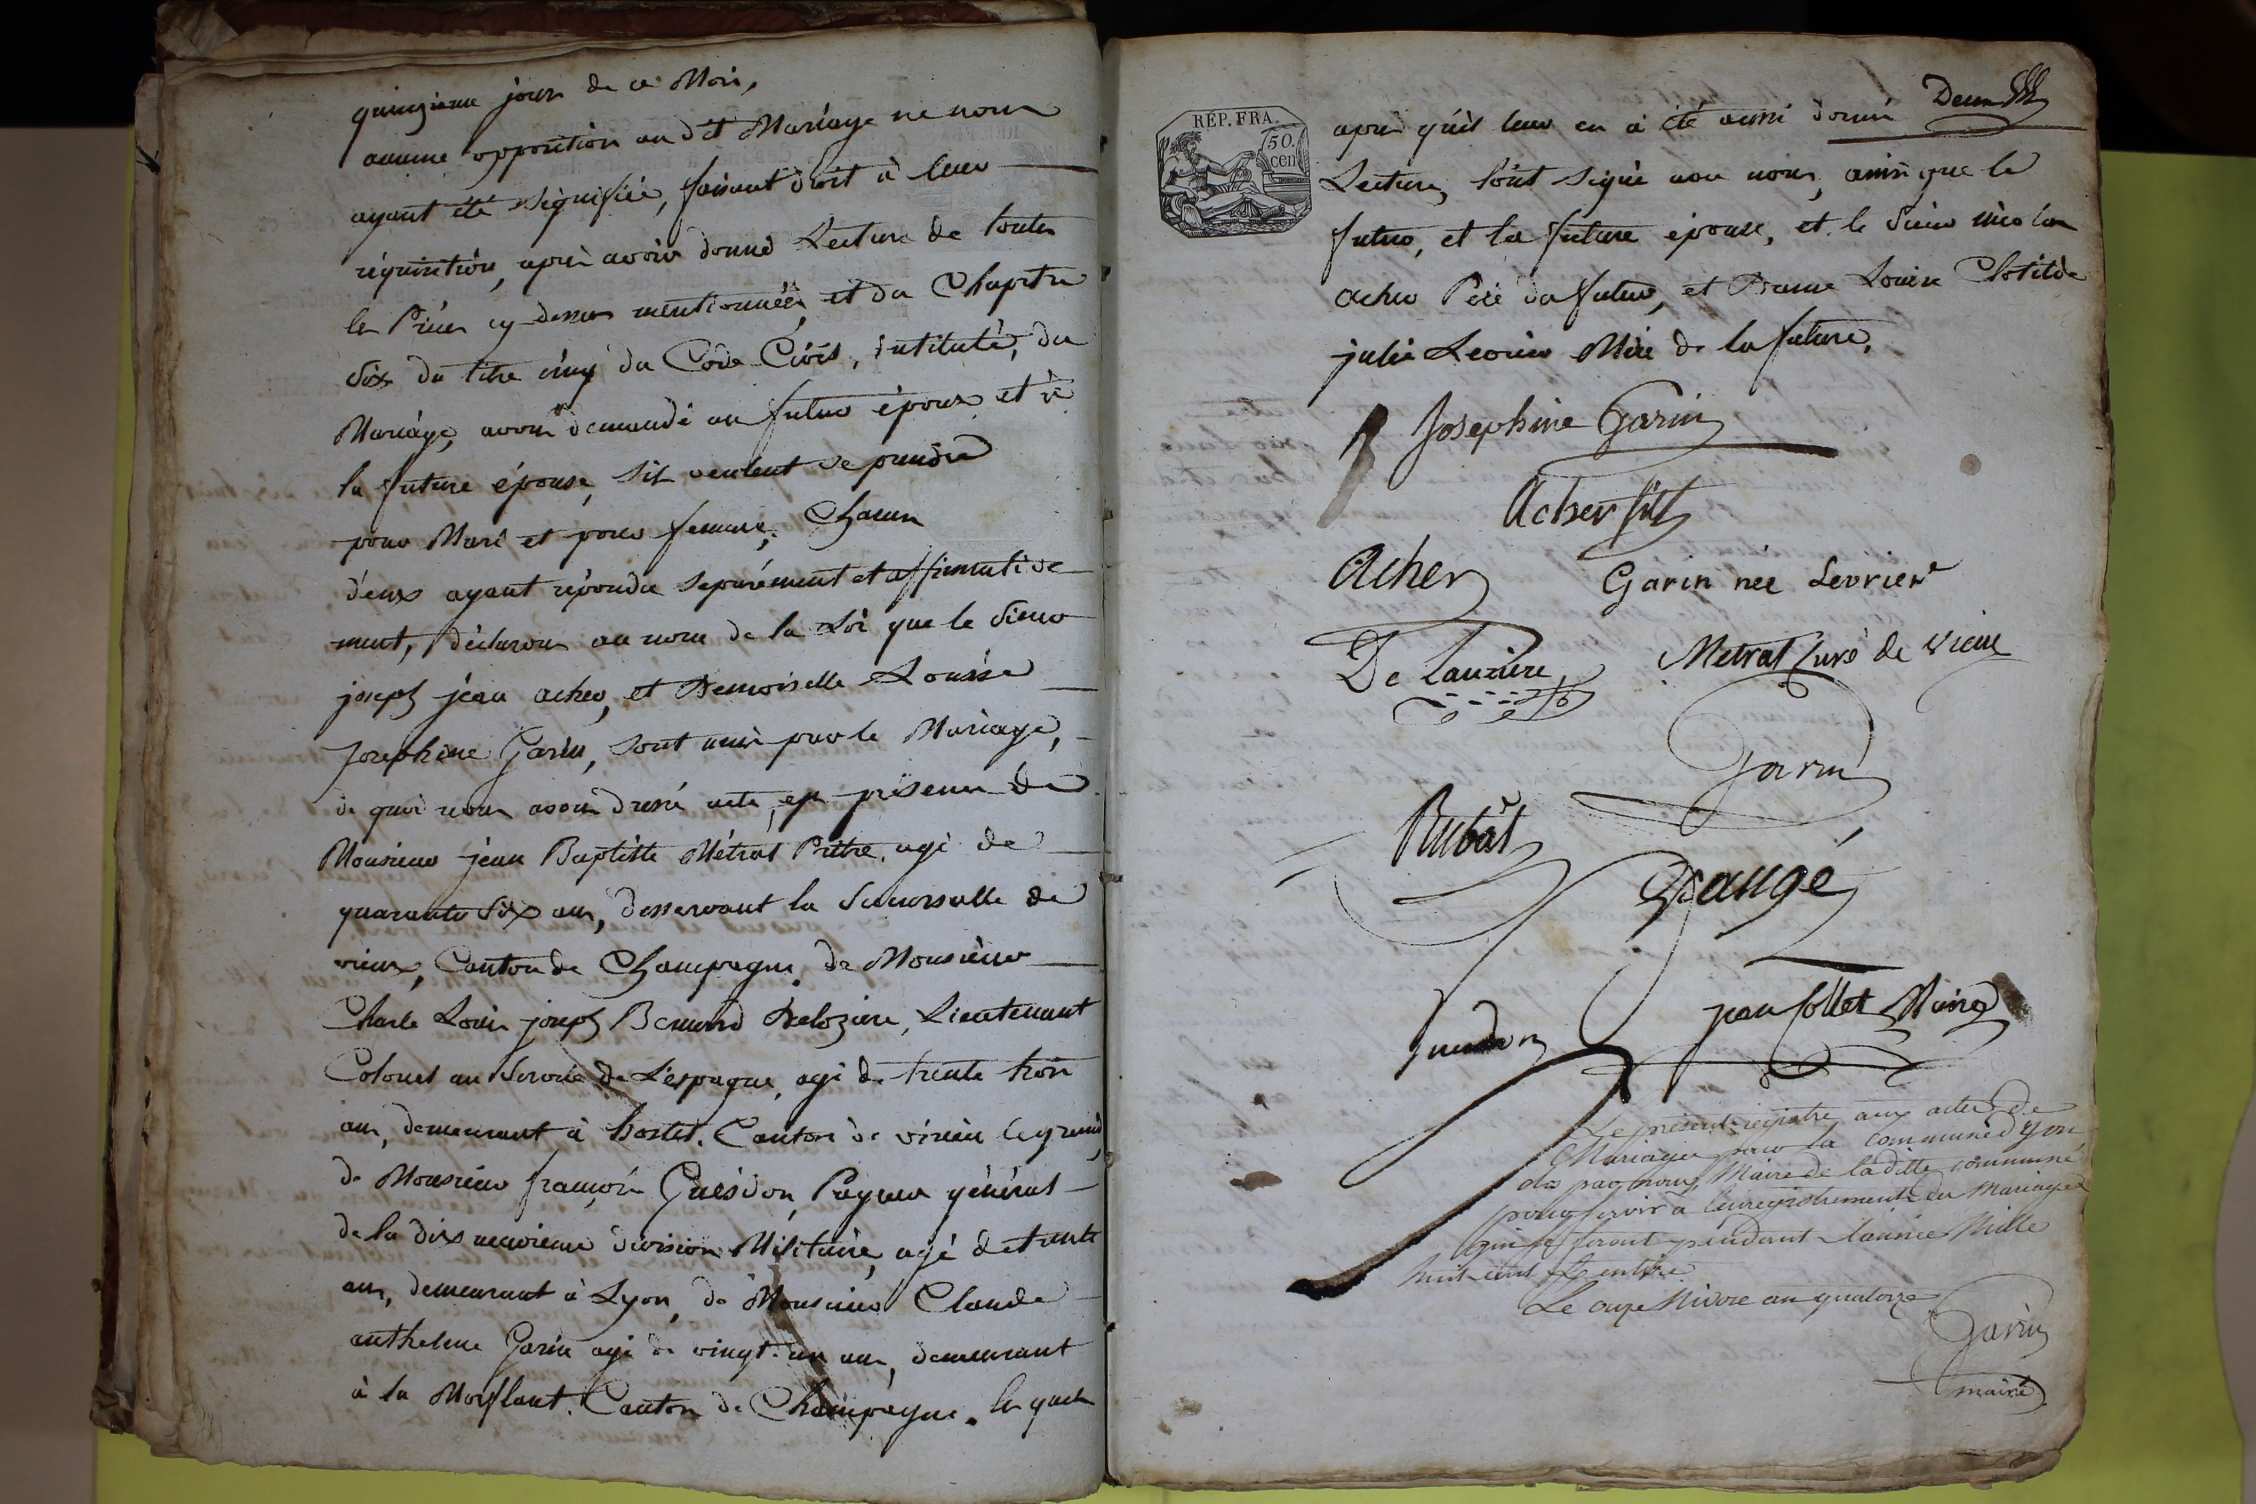 quinzieme jour de ce Mois,
aucune opposition au dit Mariage ne nous
ayant été signifiée, faisant droit à leur
réquisition, après avoir donné Lecture de toutes
les Pièces cy-dessus mentionnées, et du Chapitre
Six du titre cinq du Code Civil, intitulé, du
Mariage, avons demandé au futur époux et à
la future épouse, s'ils veulent se prendre
pour Mari et pour femme, Chacun
d'eux ayant répondu séparément et affirmative
ment, déclarons au nom de la Loi que le Sieur
joseph jean acher, et Demoiselle Louise
Josephine Garin, sont unis par le Mariage,
de quoi nous avons dressé acte, en présence de
Monsieur jean Baptiste Métral Prêtre, agé de
quarante Six ans, desservant la Succursalle de
vieux, Canton de Champagne, de Monsieur
Charle Louis joseph Bernard Delozière, Lieutenant
Colonel au Service de L'espagne, agé de trente trois
ans, demeurant à hostel, Canton de virieu le grand,
de Monsieur françois Guesdon, Payeur général
de la dix neuvieme division Militaire, agé de trente
ans, demeurant à Lyon, de Monsieur Claude
anthelme Garin agé de vingt-un ans, demeurant
à la Morflant, Canton de Champagne. les quels
REP. FRA.
50.
cen
Deux
après qu'il leur en a été aussi donné
Lecture, l'ont signé avec nous, ainsi que le
futur, et la future épouse, et le Sieur nicolas
acher Père du futur, et Dame Louise Clotilde
julie Levrier Mère de la future,
Josephine Garin
Acher fils
Acher
Garin née Levrier
De Lauzière
Metral Curé de Vieu
Garin
Rubat
Dangé
Guesdon
jean Collet Maire
Le présent registre aux actes de
Mariages pour la commune d'yon
par nous, Maire de la ditte commune
pour servir à l'enregistrement des Mariages
qui se feront pendant l'année Mille
huit cent
Le onze Nivose an quatorze
Garin
maire